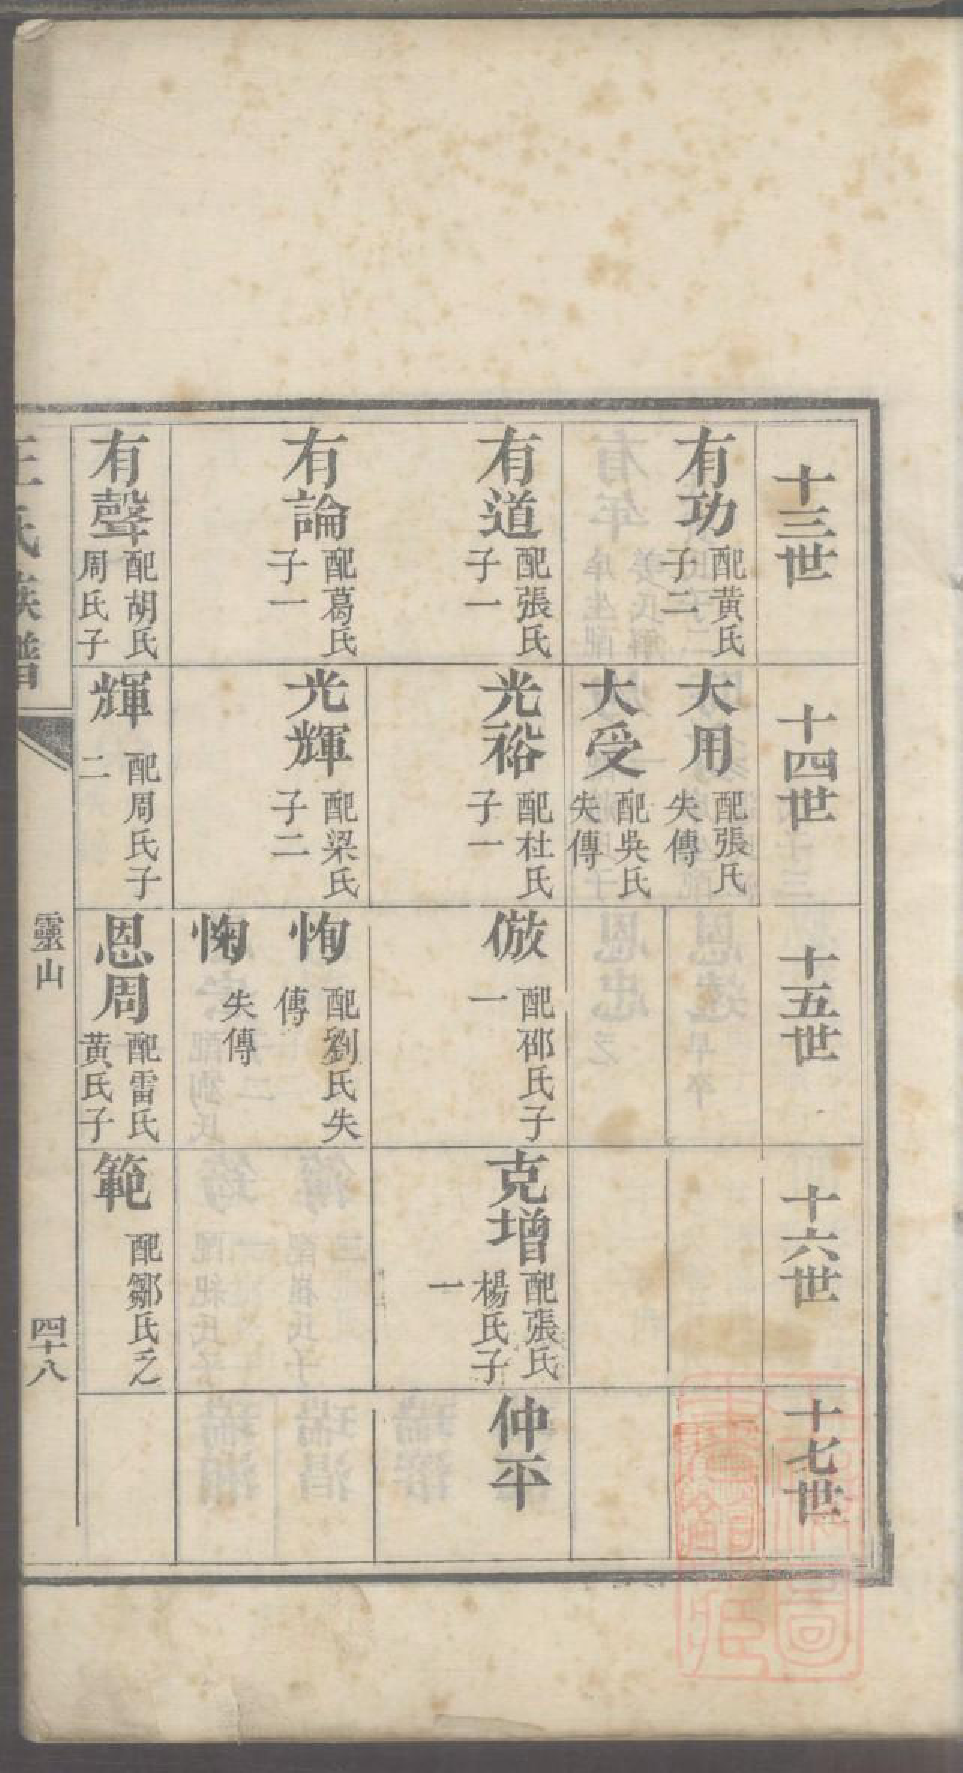 十三世
十四世
十五世
十六世
十七世
有功 配黄氏
子二
大用 配張氏
失傳
大受 配吳氏
失傳
有道 配張氏
子一
光裕 配杜氏
子一
倣 配邵氏子
一
克增 配張氏
楊氏子
一
仲平
有論 配葛氏
子一
光輝 配梁氏
子二
恂 配劉氏失
傳
㤓 失傳
有聲 配胡氏
周氏子
輝 配周氏子
二
恩周 配雷氏
黄氏子
範 配鄒氏乏
王氏族譜
靈山
四十八